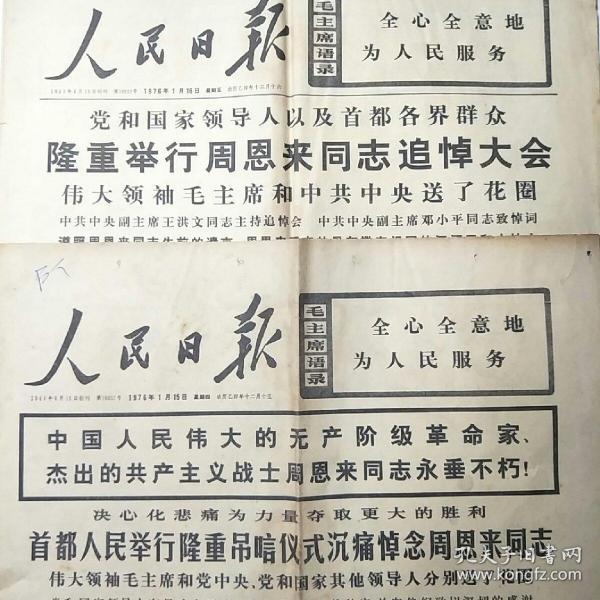 人民日报
毛主席语录
全心全意地
为人民服务
1976年1月16日 星期五
党和国家领导人以及首都各界群众
隆重举行周恩来同志追悼大会
伟大领袖毛主席和中共中央送了花圈
中共中央副主席王洪文同志主持追悼会 中共中央副主席邓小平同志致悼词
人民日报
毛主席语录
全心全意地
为人民服务
1976年1月15日 星期四
中国人民伟大的无产阶级革命家、
杰出的共产主义战士周恩来同志永垂不朽!
决心化悲痛为力量夺取更大的胜利
首都人民举行隆重吊唁仪式沉痛悼念周恩来同志
伟大领袖毛主席和党中央、党和国家其他领导人分别送了花圈
孔夫子旧书网